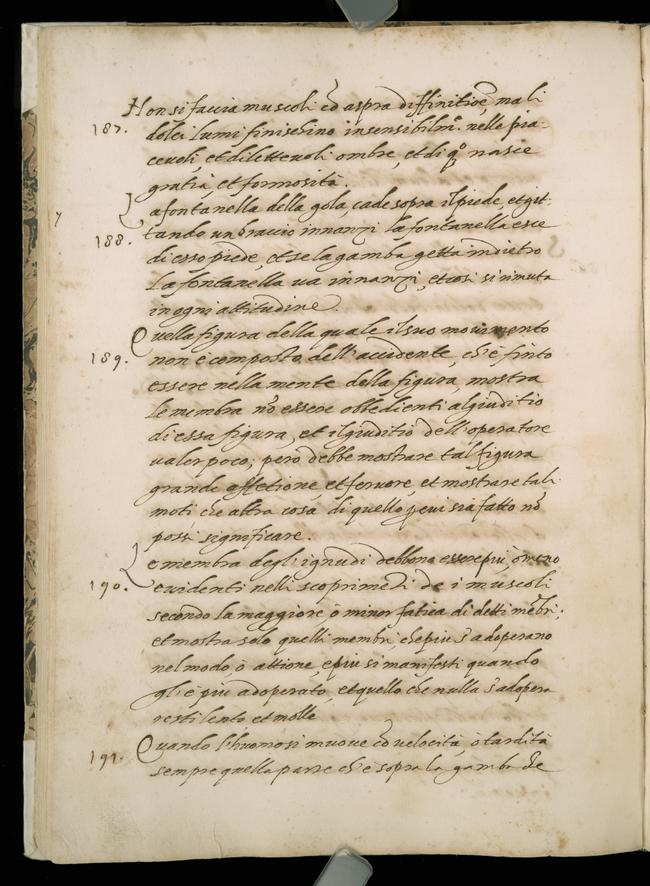 Non si faccia muscoli cō aspra diffinitioē, ma li
187.
dolci lumi finischino insensibilmᵉ. nelle pia-
cevoli, et dilettevoli ombre, et di qᵒ nasce
gratia, et formosità.
La fontanella della gola, cade sopra il piede, et git-
188.
tando un braccio innanzi la fontanella esce
di esso piede, et se la gamba getta indietro
la fontanella va innanzi, et cosi si rimuta
in ogni attitudine
Quella figura della quale il suo movimento
189.
non è composto dell'accidente, ch'è finto
essere nella mente della figura, mostra
le membra nō essere obbedienti al giuditio
di essa figura, et il giuditio dell'operatore
valer poco; però debbe mostrare tal figura
grande affetione, et fervore, et mostrare tali
moti che altra cosa di quello p cui sia fatto nō
possi significare.
Le membra degl'ignudi debbono essere più, o meno
190.
evidenti nelli scoprimēti de i muscoli
secondo la maggiore, ò minor fatica di detti mēbri;
et mostra solo quelli membri, che più s'adoperano
nel modo, ò attione, e più si manifesti quando
gl'è più adoperato, et quello che nulla s'adopera
resti lento et molle
Quando l'huomo si muove cō velocità, ò tardità
191.
sempre quella parte ch'è sopra la gamba che